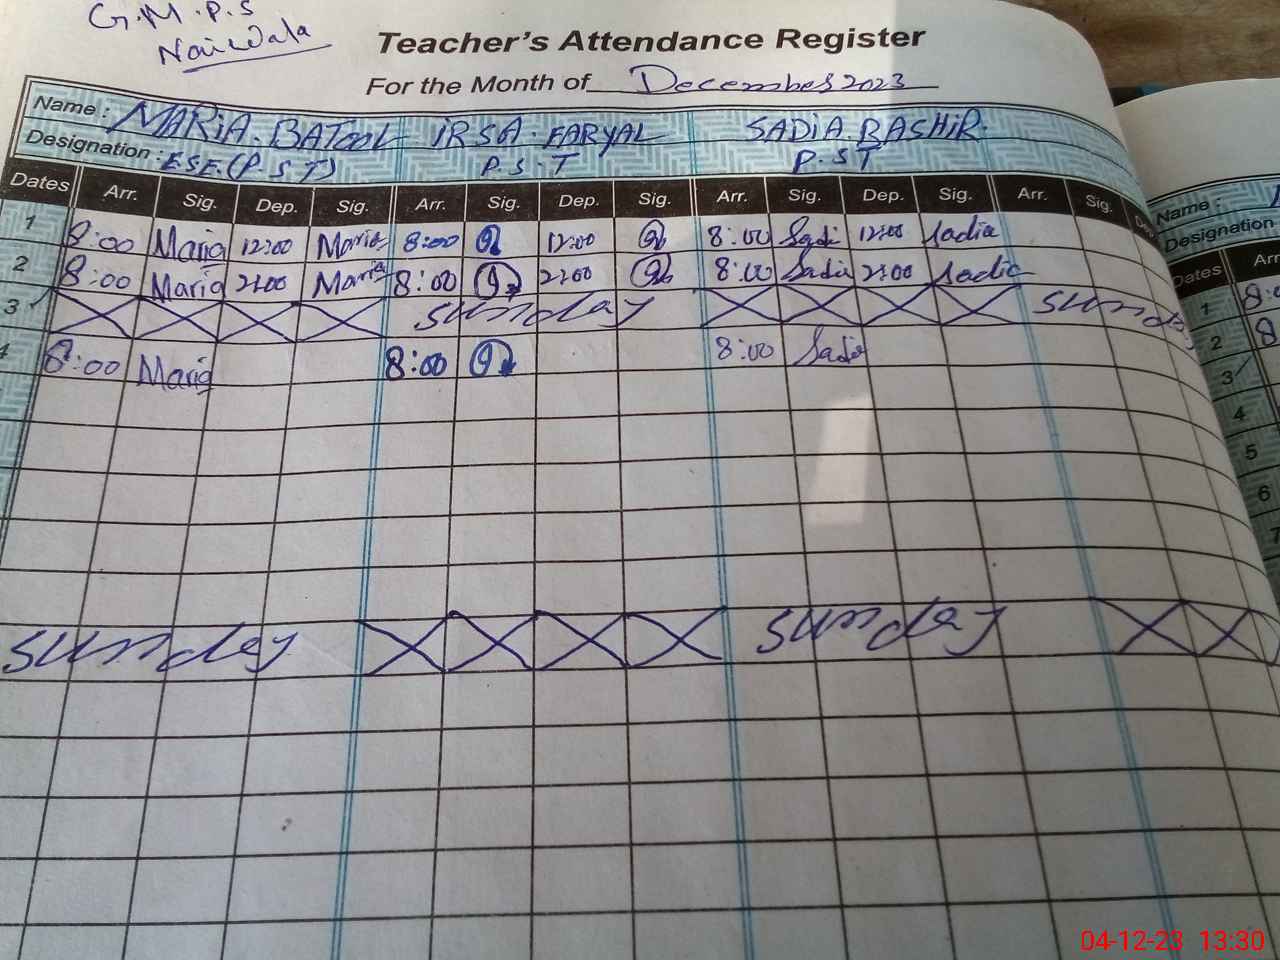 G.M.P.S
Naiwala
Teacher's Attendance Register
For the Month of December 2023
Name : MARiA.BATOOL iRSA.FARYAL SADiA.BASHiR.
Designation : ESE.(P.S.T) P.S.T P.ST
Dates Arr. Sig. Dep. Sig. Arr. Sig. Dep. Sig. Arr. Sig. Dep. Sig. Arr. Sig. Dep.
1 8:00 Maria 12:00 Maria 8:00 12:00 8:00 Sadi 12:00 Sadia
2 8:00 Maria 2:00 Maria 8:00 2:00 8:00 Sadia 2:00 Sadia
3 Sunday Sunday
4 8:00 Maria 8:00 8:00 Sadia
Sunday Sunday
Name :
Designation
Dates Arr
1 8:0
2 8
3
4
5
6
7
04-12-23 13:30